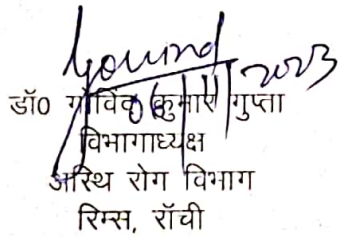 Govind
06/11/2023
डॉ० गोविंद कुमार गुप्ता
विभागाध्यक्ष
अस्थि रोग विभाग
रिम्स, राँची